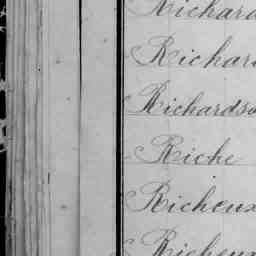 Richard
Richard
Richardso
Riche
Richeux
Richeux